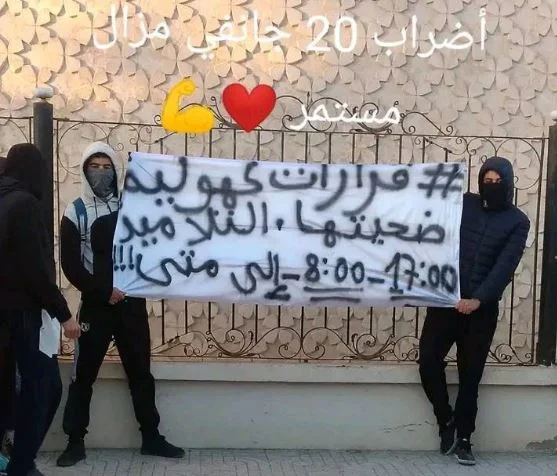 أضراب 20 جانفي مزال
مستمر ❤️ 💪
# قرارات كهولية
ضحيتها . التلاميذ
17:00 - 8:00 - إلى متى !!!